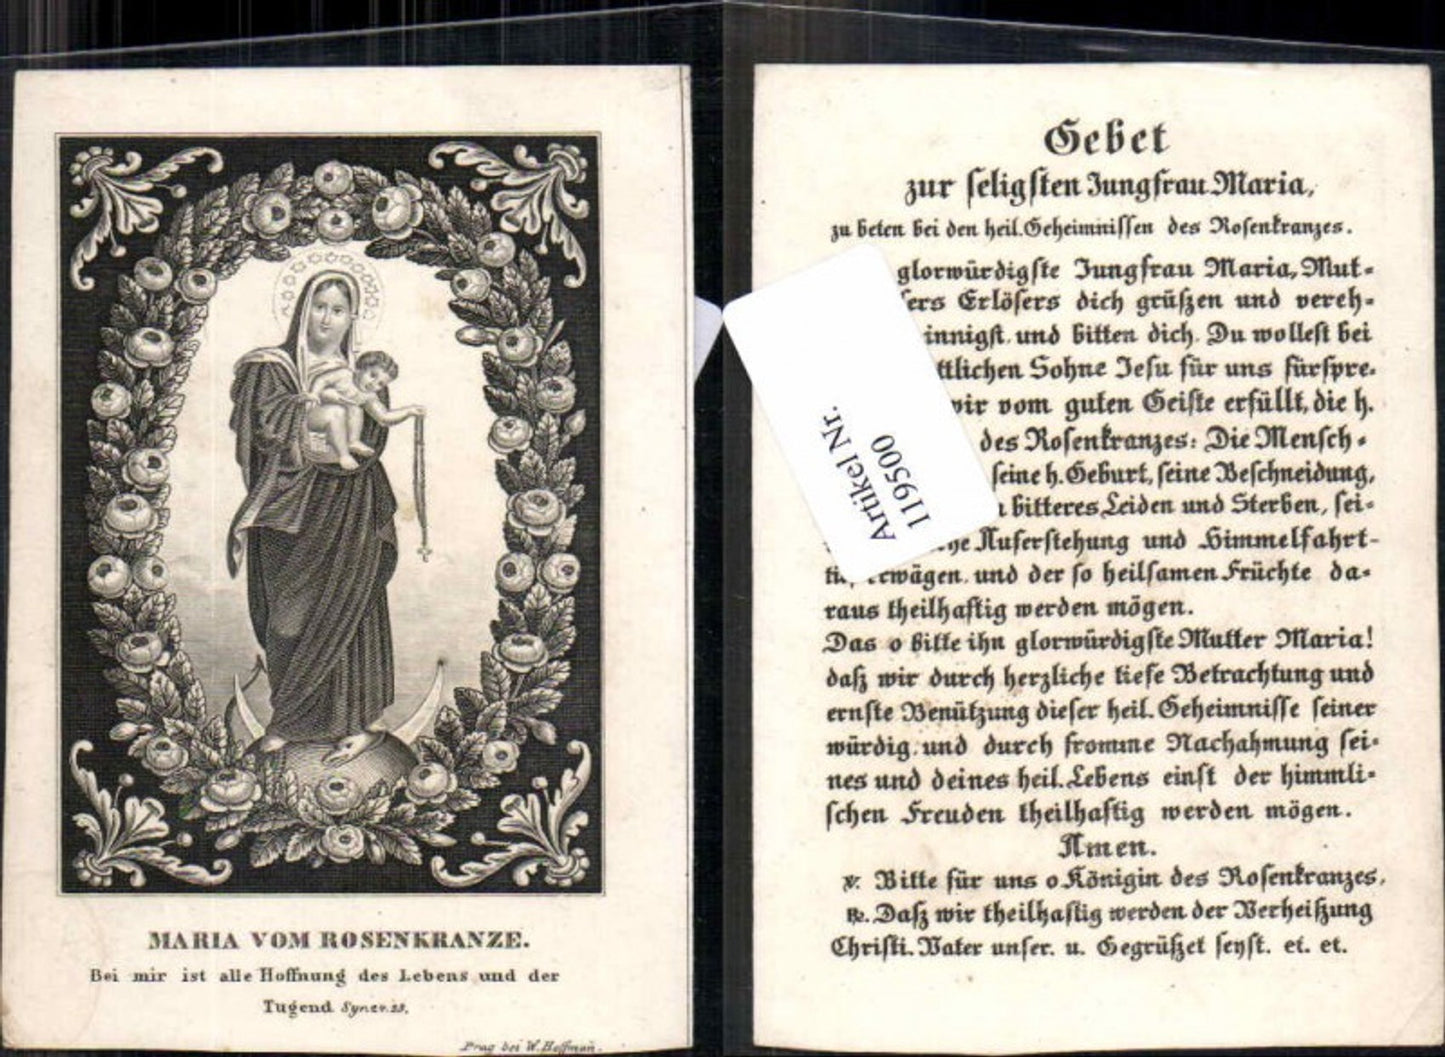 MARIA VOM ROSENKRANZE.
Bei mir ist alle Hoffnung des Lebens und der
Tugend
Prag bei W. Hoffman.
Gebet
zur seligsten Jungfrau Maria,
zu beten bei den heil. Geheimnissen des Rosenkranzes.
glorwürdigste Jungfrau Maria, Mut-
sers Erlösers dich grüßen und vereh-
innigst. und bitten dich. Du wollest bei
ttlichen Sohne Jesu für uns fürspre-
wir vom guten Geiste erfüllt, die h.
des Rosenkranzes: Die Mensch-
seine h. Geburt, seine Beschneidung,
bitteres Leiden und Sterben, sei-
che Auferstehung und Himmelfahrt-
erwägen. und der so heilsamen Früchte da-
raus theilhaftig werden mögen.
Das o bitte ihn glorwürdigste Mutter Maria!
daß wir durch herzliche tiefe Betrachtung und
ernste Benützung dieser heil. Geheimnisse seiner
würdig. und durch fromme Nachahmung sei-
nes und deines heil. Lebens einst der himmli-
schen Freuden theilhaftig werden mögen.
Amen.
℣. Bitte für uns o Königin des Rosenkranzes.
℟. Daß wir theilhaftig werden der Verheißung
Christi. Vater unser. u. Gegrüßet seyst. et. et.
Artikel Nr.
119500